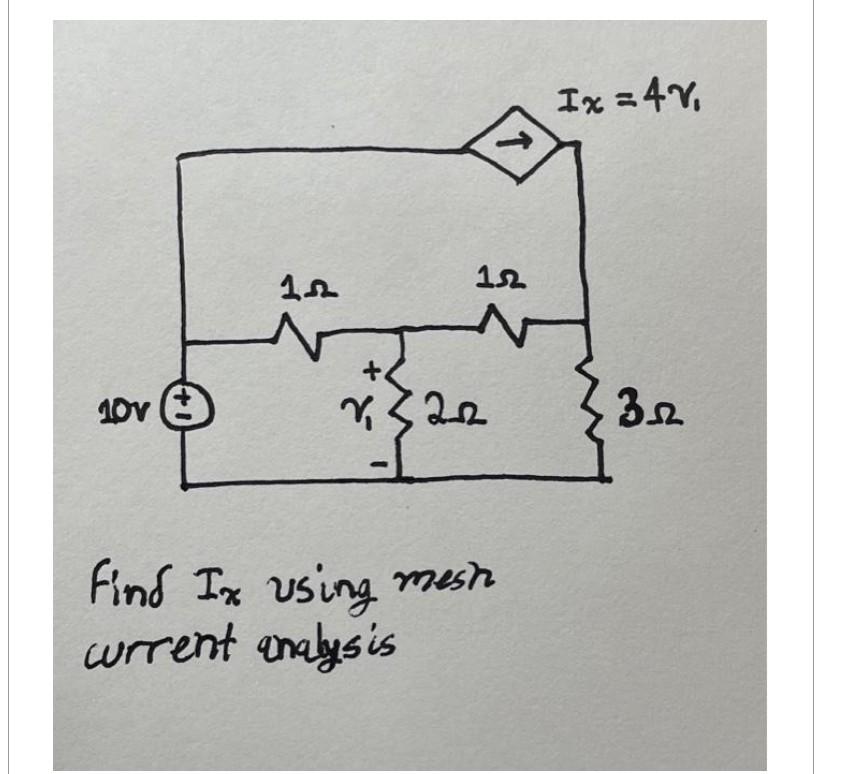 Ix = 4v₁
1Ω
1Ω
10v
+
-
+
v₁
-
2Ω
3Ω
find Ix using mesh
current analysis